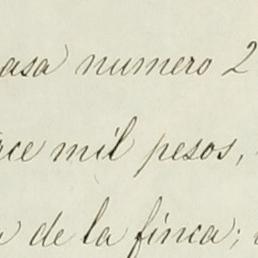 asa numero 2
ce mil pesos,
de la finca;